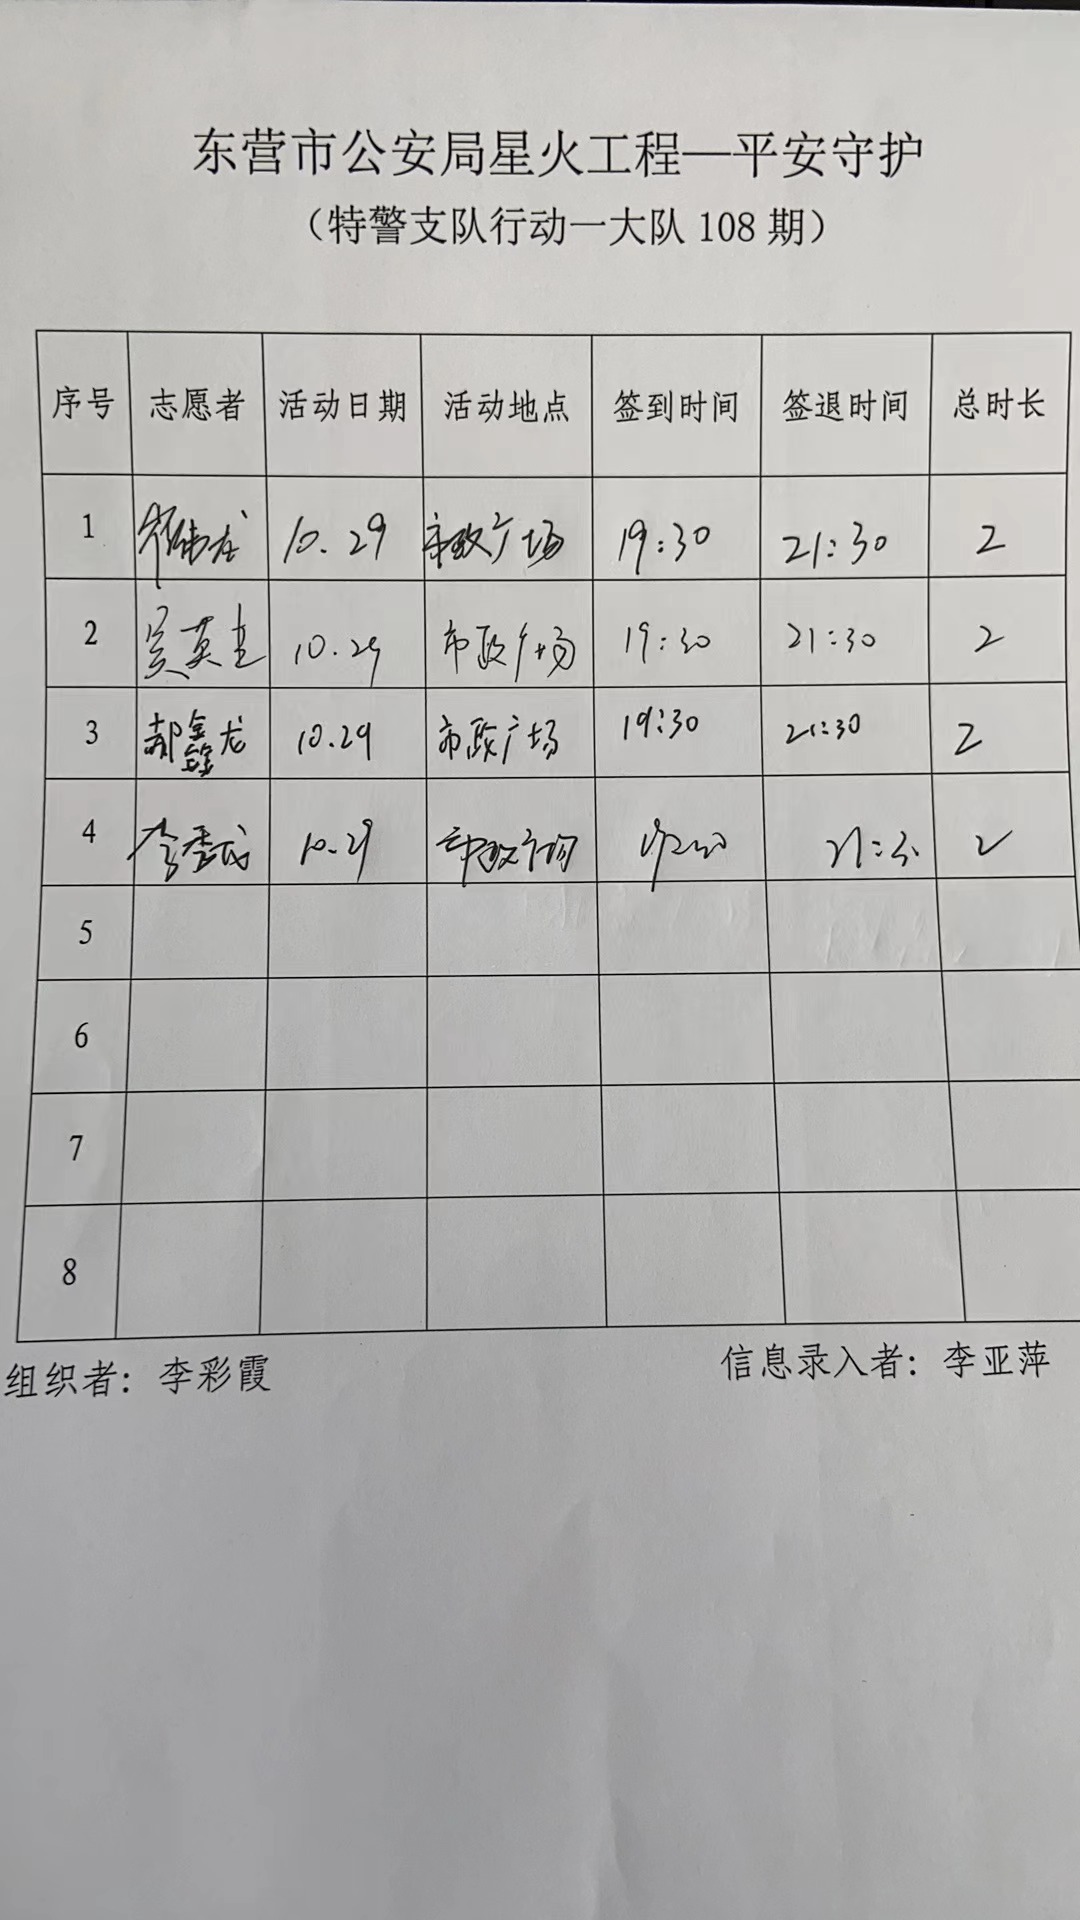 东营市公安局星火工程—平安守护
（特警支队行动一大队 108 期）
序号 志愿者 活动日期 活动地点 签到时间 签退时间 总时长
1 10.29 市政广场 19:30 21:30 2
2 吴英圭 10.29 市政广场 19:30 21:30 2
3 郝鑫龙 10.29 市政广场 19:30 21:30 2
4 李秀成 10.29 市政广场 21:30 2
5
6
7
8
组织者：李彩霞 信息录入者：李亚萍